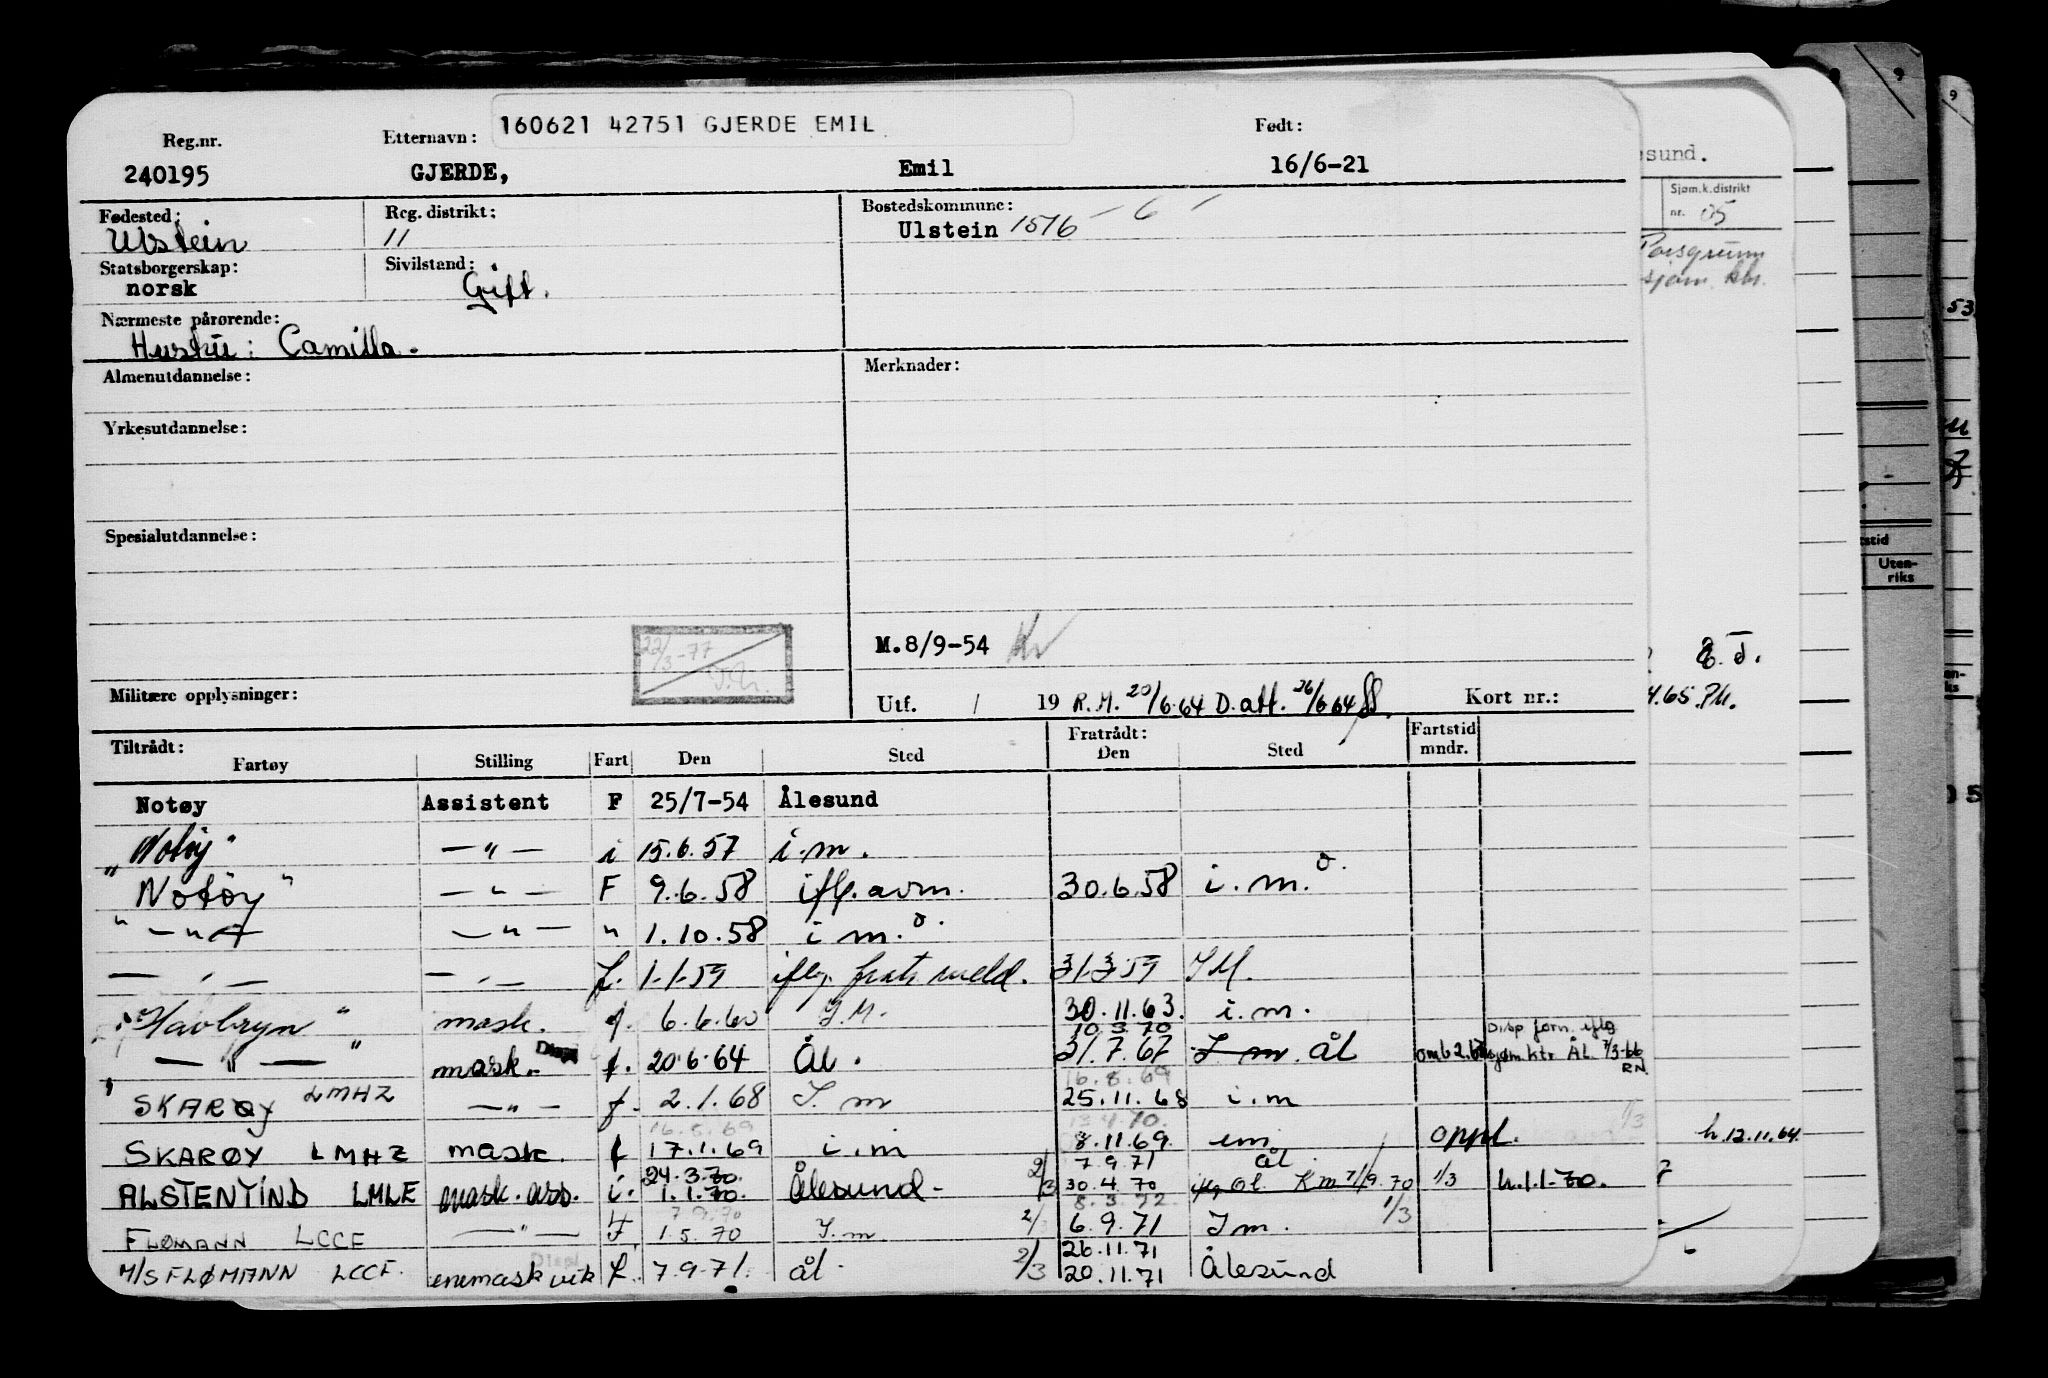 160621 42751 GJERDE EMIL
Reg.nr. Etternavn: Født:
240195 GJERDE, Emil 16/6-21
Fødested: Reg. distrikt: Bostedskommune:
Ulstein 11 Ulstein 1516 - 6 -
Statsborgerskap: Sivilstand:
norsk Gift.
Nærmeste pårørende:
Hustru: Camilla.
Almenutdannelse: Merknader:
Yrkesutdannelse:
Spesialutdannelse:
22/3-77
M.8/9-54
Militære opplysninger: Utf. / 19 R.M. 20/6.64 D.att. 26/6 64 Kort nr.:
Tiltrådt: Fratrådt: Fartstid
Fartøy Stilling Fart Den Sted Den Sted mndr.
Notøy Assistent F 25/7-54 Ålesund
"Notøy" — " — i 15.6.57 i.m.
Notøy" — " — F 9.6.58 iflg. avm. 30.6.58 i.m.
" — " — — " — " 1.10.58 i m.
— " — — " — f. 1-1-59 iflg. fratr. meld. 31.3.59 I M.
"Havbryn" mask. f. 6.6.60 I.M. 30.11.63. i.m.
10.3.70 Disp forn. iflg
— " — " mask. Disp f. 20.6.64 Ål. 31.7.67 I m. Ål sjøm.ktr ÅL 7/3-66 RN
16.8.69
SKARØY LMHZ — " — f. 2.1.68 I. m 25.11.68 i.m
16.8.69 13.4.70.
SKARØY LMHZ mask. f 17.1.69 i.m 8.11.69. im oppl. 1/3
24.3.70. 7.9.71 Ål
ALSTENTIND LMLE mask. ass. i. 1.1.70. Ålesund - 2/3 30.4.70 Km 7/9.70 1/3 h.1.1-70.
7.9.70 8.3.72
FLØMANN LCCF — " — F 1.5.70 I.m 2/3 6.9.71 I m. 1/3
Disp. 26.11.71
M/S FLØMANN LCCF. enemask vik f. 7.9.71. ål 2/3 20.11.71 Ålesund
sund.
Sjøm.k.distrikt
nr. 05
Porsgrunn
sjøm. ktr.
4.65.
h.12.11.64
53
Uten-
riks